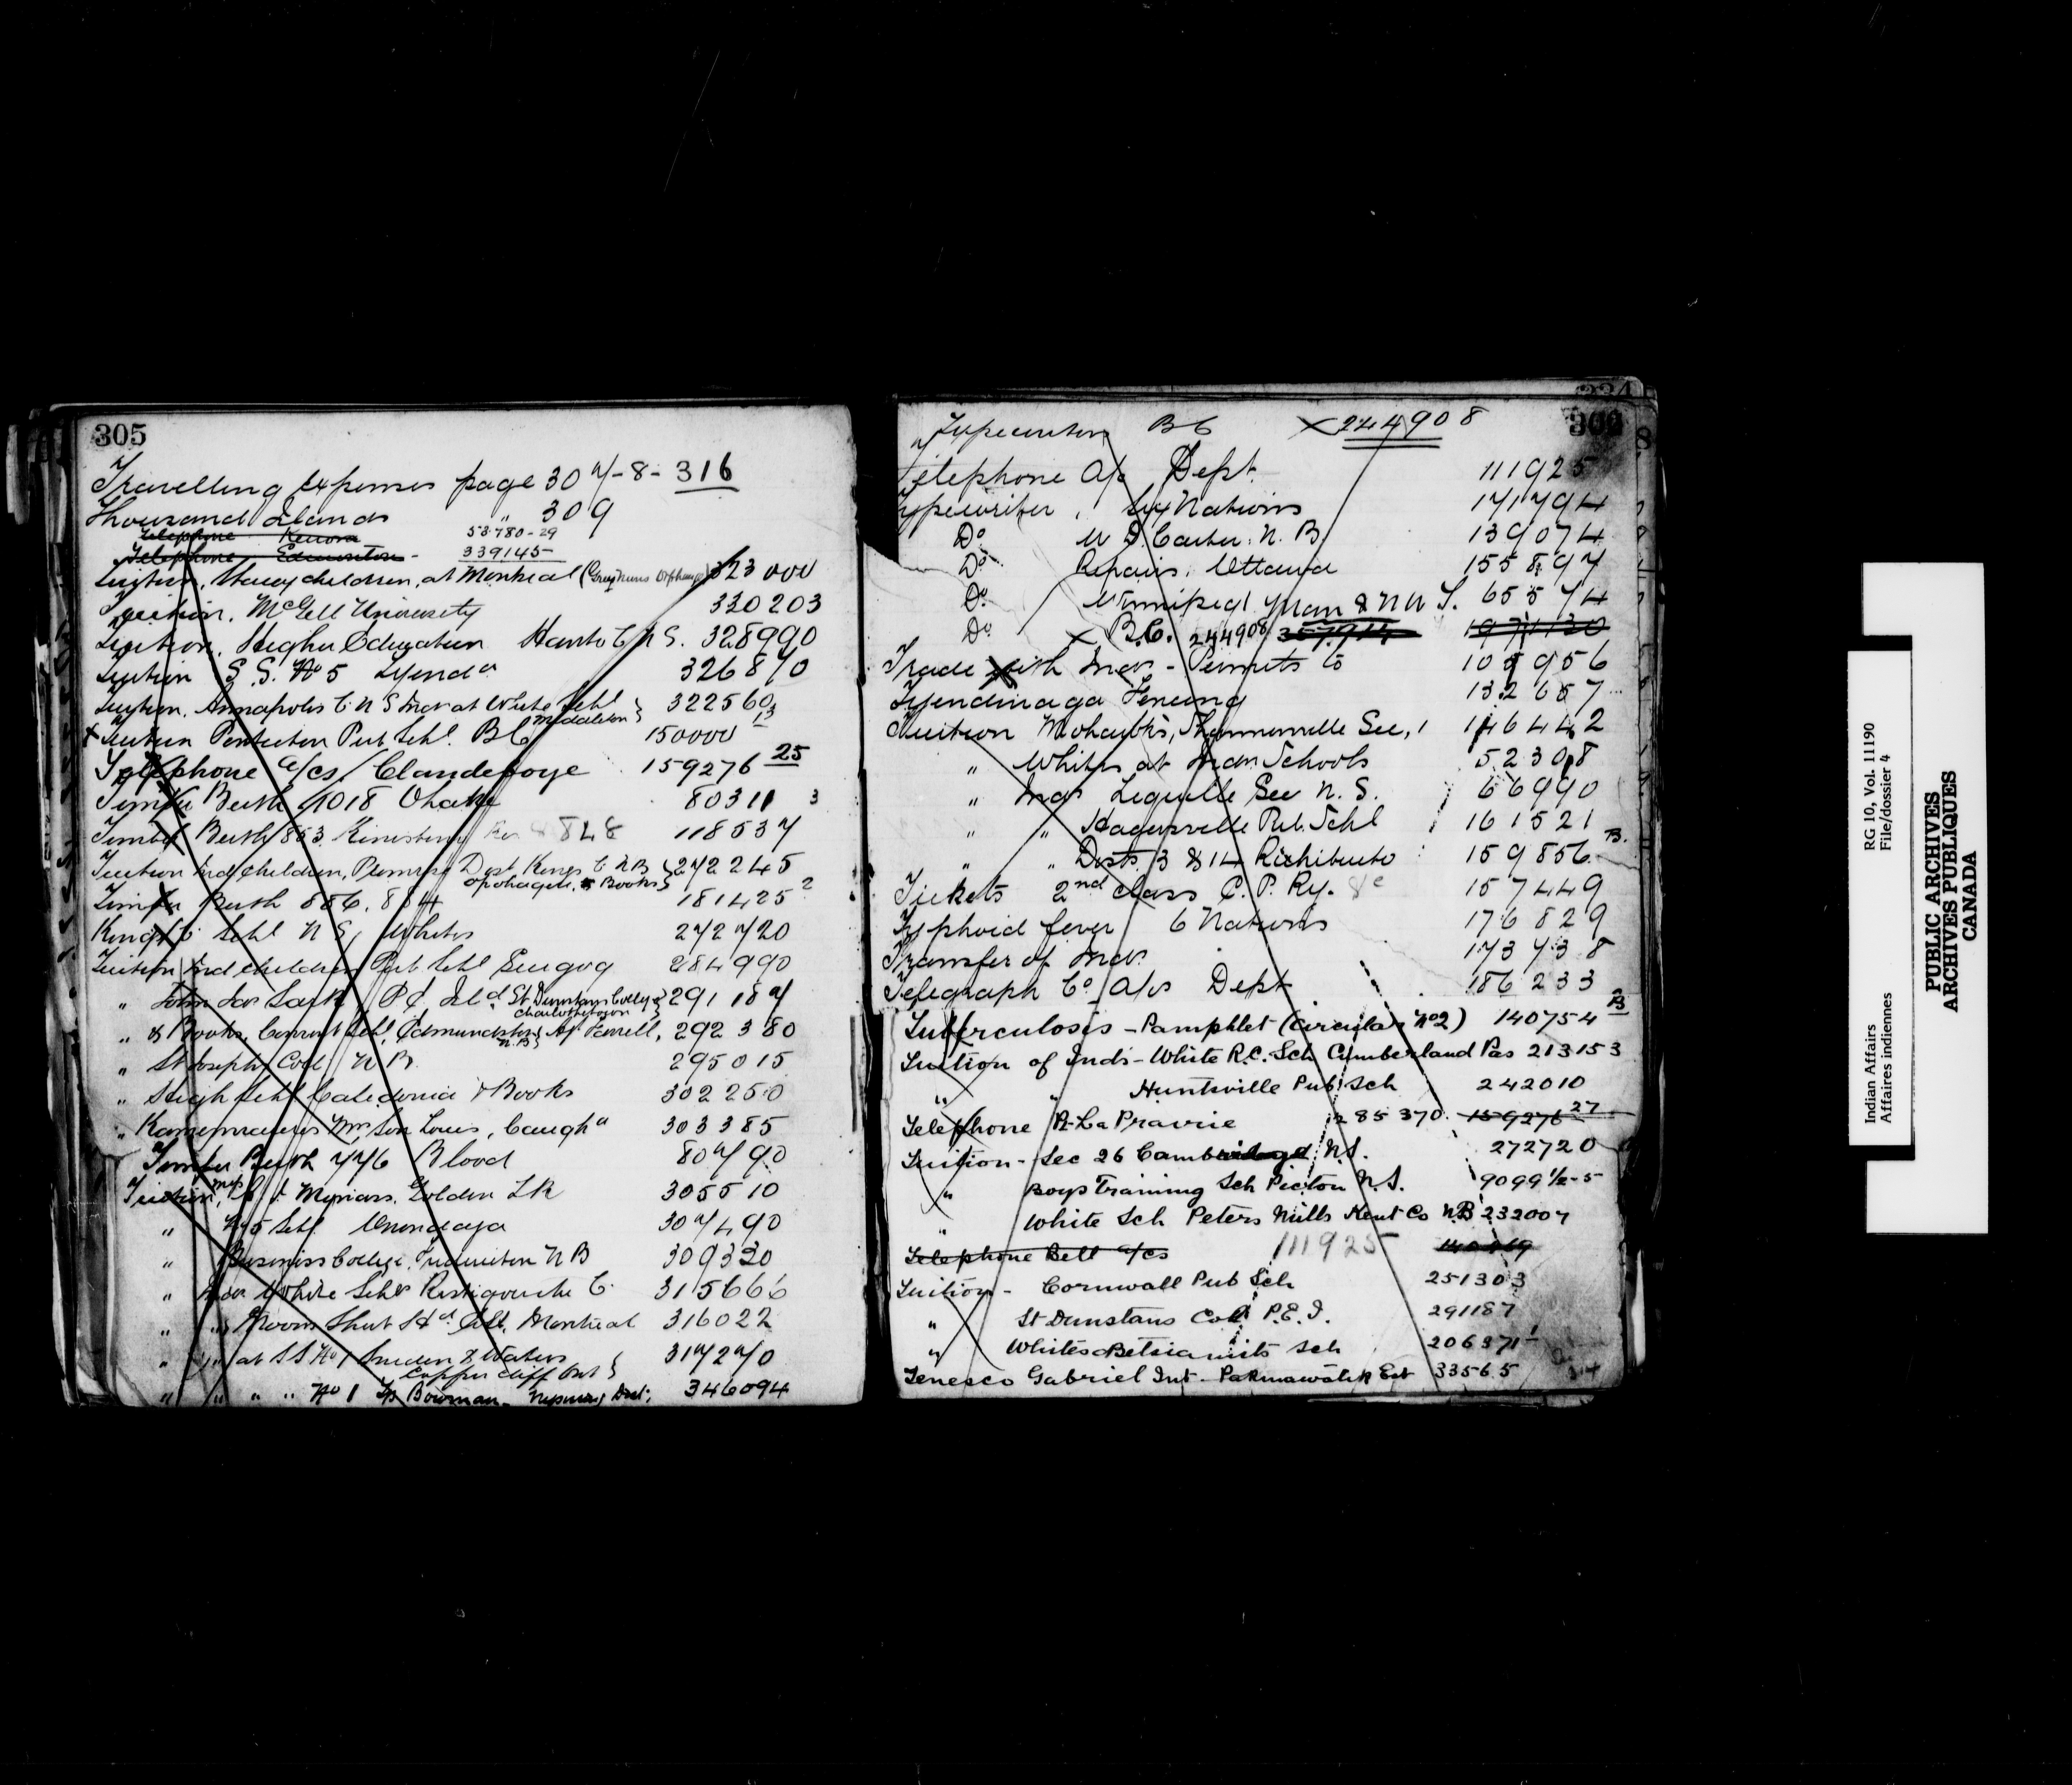 305
Travelling expenses page 307-8-316
Thousand Islands " 309
Telephone Kenora 53780-29
Telephone Edmonton - 339145-
Tuition, children, at Montreal (Grey Nuns Orphange) 323000
Tuition, McGill University 330203
Tuition, Higher Education Hants C N S. 328990
Tuition S. S. No 5 Tyenda 326870
Tuition, Annapolis C. N S Inds at White Schl Middleton } 322560
x Tuition Penticton Pub. Schl. B C 150000 13
Telephone a/cs, Clandeboye 159276 25
Timber Berth 1018 80311 3
Timber Berth 853 848 118537
Tuition Ind children, Dist Kings C. N B & Books } 272245
Timber Berth 886, 884 181425 2
Kings C Schl N S, Whites 272720
Tuition Ind children Pub Schl Scugog 284990
" John Jas Sark P E Isld St Dunstans College Charlottetown } 291187
" & Books, Convent Schl, Edmundston N.B } 292380
" St Joseph Coll N B. 295015
" High Schl Caledonia & Books 302250
" Louis, Caugha 303385
Timber Berth 776 Blood 80790
Tuition, Golden Lk 305510
" No 5 Schl Onondaga 307490
" Business College, Fredericton N B 309320
" Inds White Schls Restigouche C. 315666
" Montreal 316022
" " at S S No 1 Sneider & Waters Copper Cliff Ont } 317270
" " " " No 1 Tp Bowman - Nipissing Dist; 346094
306
" Typewriters B C x 244908
Telephone A/c Dept. 111925
Typewriter, Six Nations 171794
Do W D. Carter. N. B. 139074
Do Repairs, Ottawa 155897
Do Winnipeg Man & N W T. 65574
Do x B.C. 244908
Trade with Inds - Permits to 109956
Tyendinaga Fencing 132657
Tuition Mohawks, Shannonville Sec, 1 146442
" Whites at Indn Schools 52308
" Inds Lequille Sec N. S. 66990
" " Hagersville Pub. Schl 161521
" " Dists. 3 & 14 Richibucto 159856 B.
Tickets 2nd class C. P. Ry. 157449
Typhoid fever 6 Nations 176829
Transfer of Inds. 173738
Telegraph Co A/cs Dept 186233
Tuberculosis - Pamphlet (circular No2) 140754 B
Tuition of Inds - White R.C. Sch Cumberland Pas 213153
" " Huntsville Pub Sch 242010
Telephone P. La Prairie 285370 159276 27
Tuition - Sec 26 Cambridge N.S. 272720
" Boys Training Sch Picton N.S. 9099½-5
" White Sch Peters Mills Kent Co N.B 232007
Telephone Bell a/cs 111925
Tuition - Cornwall Pub Sch 251303
" St Dunstans Coll P.E.I. 291187
" Whites Betsiamits Sch 206371
Tenesco Gabriel Int - Est 33565
Indian Affairs RG 10, Vol. 11190
Affaires indiennes File/dossier 4
PUBLIC ARCHIVES
ARCHIVES PUBLIQUES
CANADA